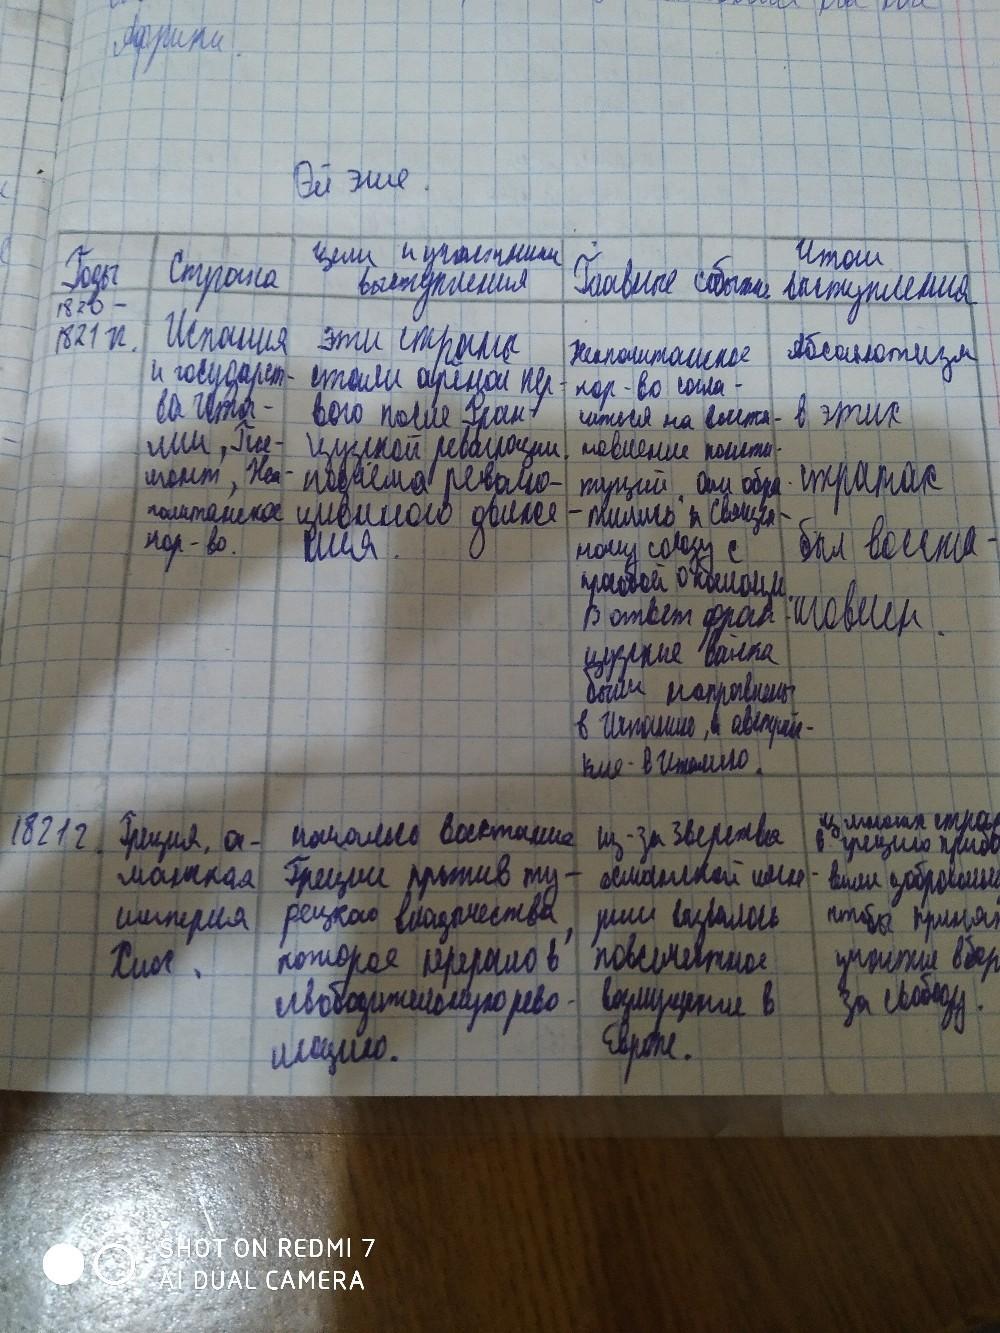 Африки.
Өй эше.
Годы
Страна
Цели и участники
выступления
Главные события
Итоги
выступления
1820 -
1821 гг.
Испания
и государст-
ва Ита-
лии, Пье-
монт, Неа-
политанское
кор-во.
эти страны
стали ареной пер-
вого после Фран-
цузской революции
подъема револю-
ционного движе-
ния.
Неаполитанское
кор-во согла-
на восста-
новление консти-
туций. Они обра-
тились к Священ-
ному союзу с
просьбой о помощи.
В ответ фран-
цузские войска
были направлены
в Испанию, а австрий-
кие - в Италию.
Абсолютизм
в этих
странах
был восста-
новлен.
1821г.
Греция, ос-
манская
империя
Хиос.
началось восстание
Греции против ту-
рецкого владычества,
которое переросло в
освободительную рево-
люцию.
из-за зверства
османской импе-
рии вызвалось
повсеместное
возмущение в
Европе.
из многих стран
в Грецию
чтобы
участие в
за свободу.
SHOT ON REDMI 7
AI DUAL CAMERA